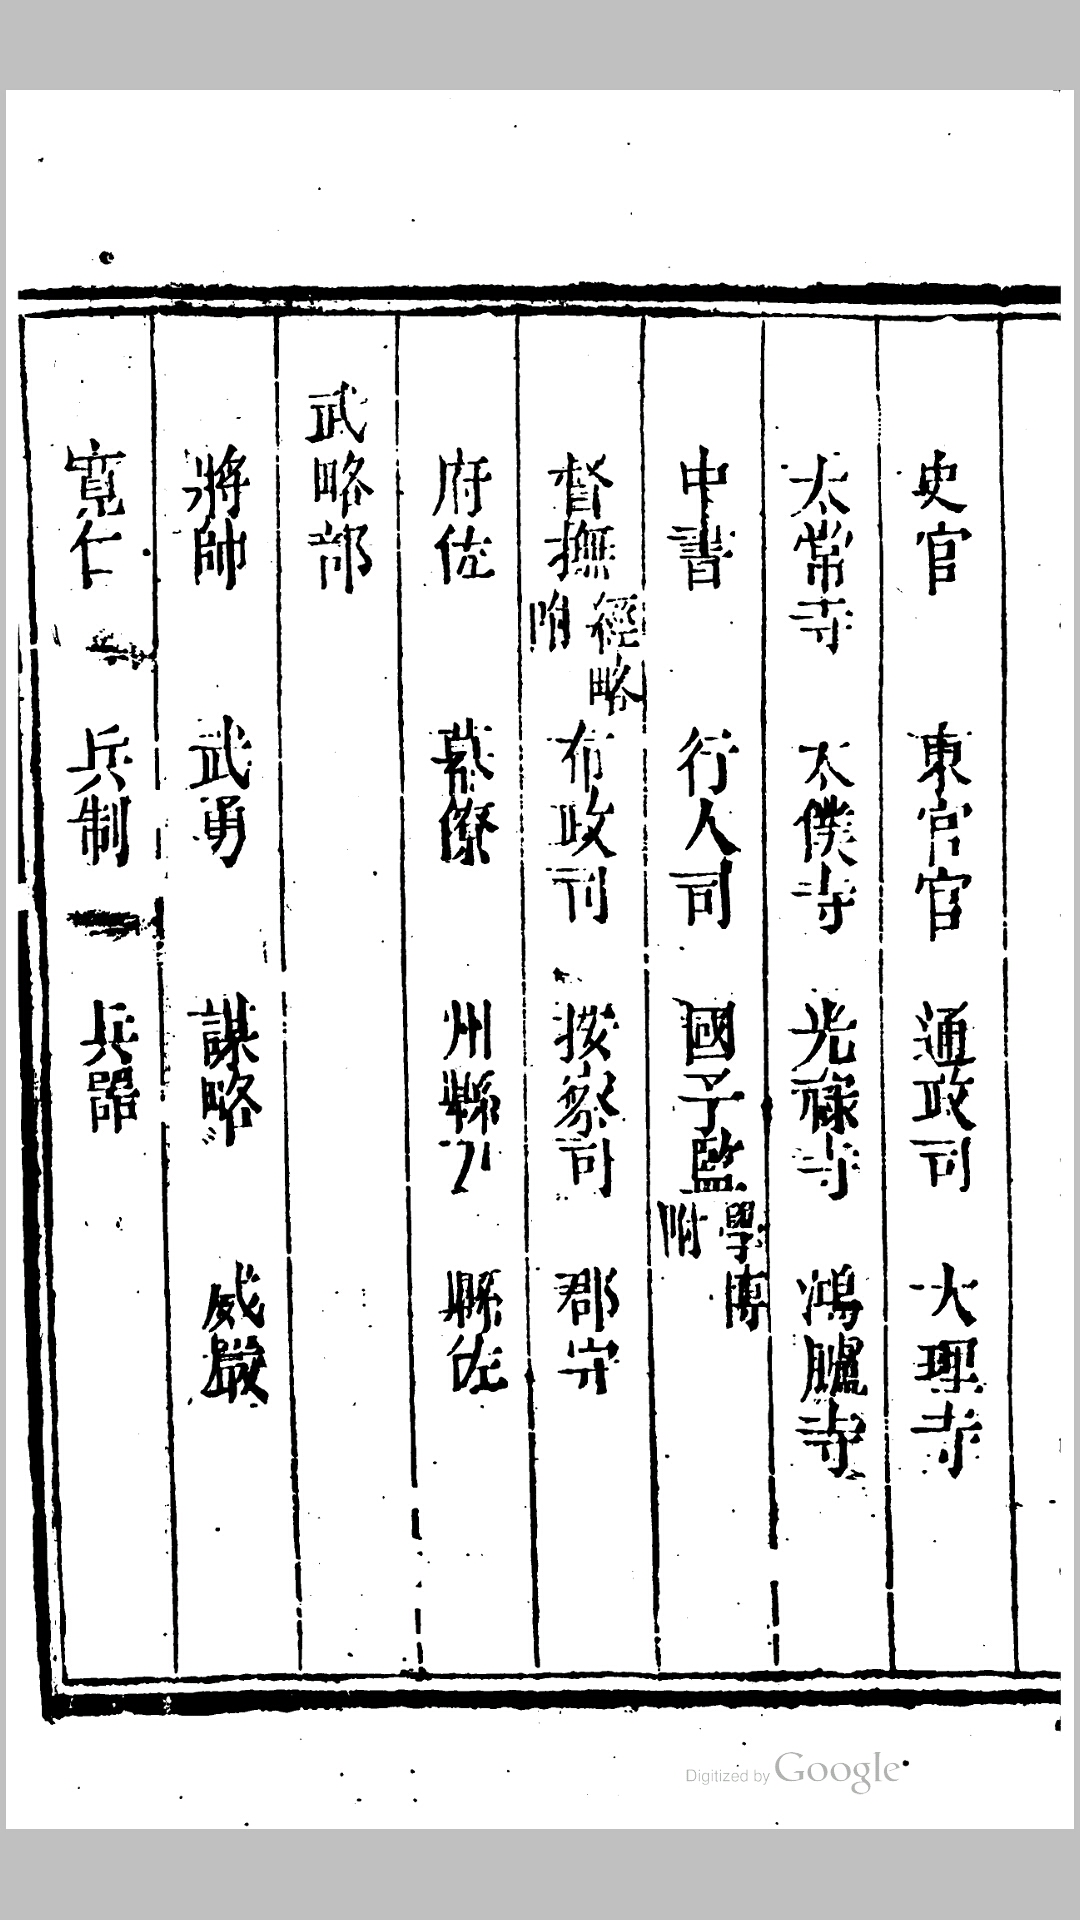 史官 東宮官 通政司 大理寺
太常寺 太僕寺 光祿寺 鴻臚寺
中書 行人司 國子監 學博附
督撫 經略附 布政司 按察司 郡守
府佐 幕僚 州縣 縣佐
武略部
將帥 武勇 謀略 威嚴
寬仁 兵制 兵器
Digitized by Google